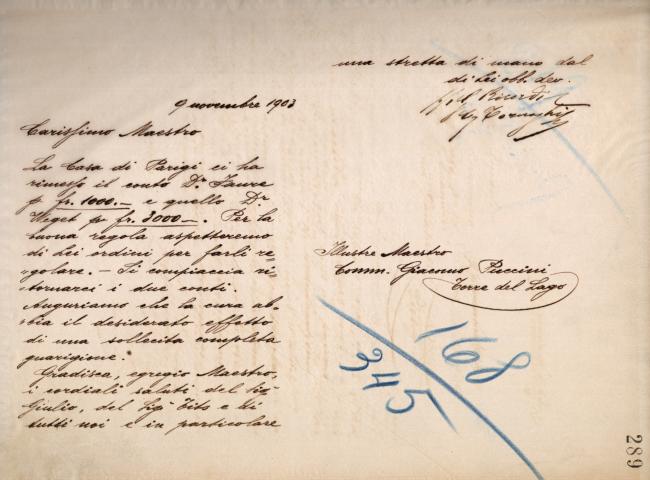 9 novembre 1903
Carissimo Maestro
La Casa di Parigi ci ha
rimesso il conto Dr. Faure
p fr. 1000.— e quello Dr.
Weget p fr. 3000—. Per la
buona regola aspetteremo
di Lei ordini per farli re=
=golare.— Si compiaccia ri=
=tornarci i due conti.
Auguriamo che la cura ab=
=bia il desiderato effetto
di una sollecita completa
guarigione.
Gradisca, egregio Maestro,
i cordiali saluti del Sig
Giulio, del Sig Tito e di
tutti noi e in particolare
una stretta di mano dal
di Lei obb. dev.
Ricordi
Illustre Maestro
Comm. Giacomo Puccini
Torre del Lago
168
345
289